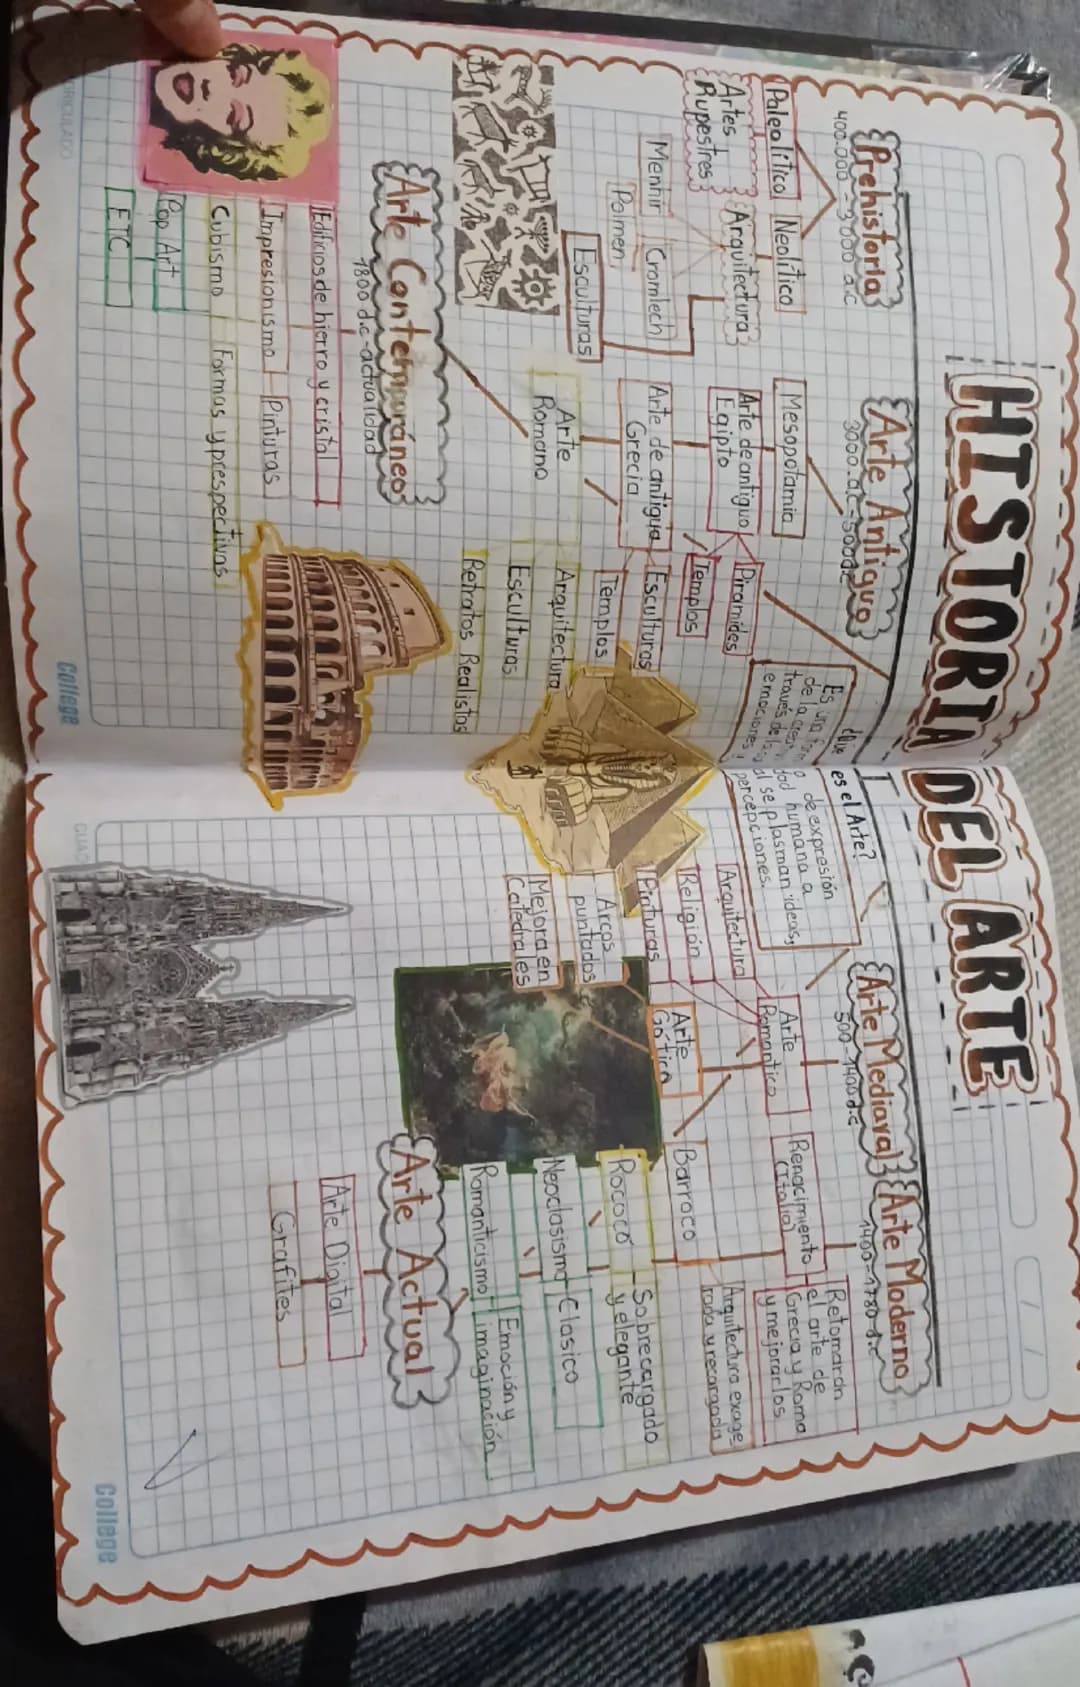 HISTORIA DEL ARTE
¿Que es el Arte?
de expresión
de la
humana a
través de
al se plasman ideas,
emociones,
percepciones.
Prehistoria
400.000 - 3000 a.c
Paleolítico
Neolítico
Artes
Rupestres
Arquitectura
Menhir
Cromlech
Polmen
Esculturas
Arte Antiguo
3000.a.c - 500d.c
Mesopotamia
Arte de antiguo
Egipto
Piramides
Templos
Arte de antigua
Grecia
Esculturas
Templos
Arte
Romano
Arquitectura
Esculturas
Retratos Realistas
Arte Mediaval
500 - 1400 d.c
Arte
Romantico
Arquitectura
Religión
Pinturas
Arte
Gótico
Arcos
puntados
Mejora en
Catedrales
Arte Moderno
1400 - 1780 d.c
Renacimiento
(Italia)
Retomarón
el arte de
Grecia y Roma
y mejorarlos
Barroco
Arquitectura exage
rada y recargada
Rococó
Sobrecargado
y elegante
Neoclasismo
Clasico
Romanticismo
Emoción y
imaginación
Arte Contemporáneo
1800 d.c - actualidad
Edificios de hierro y cristal
Impresionismo - Pinturas
Cubismo
Formas y prespectivas
Pop Art
ETC
Arte Actual
Arte Digital
Grafities
College
College